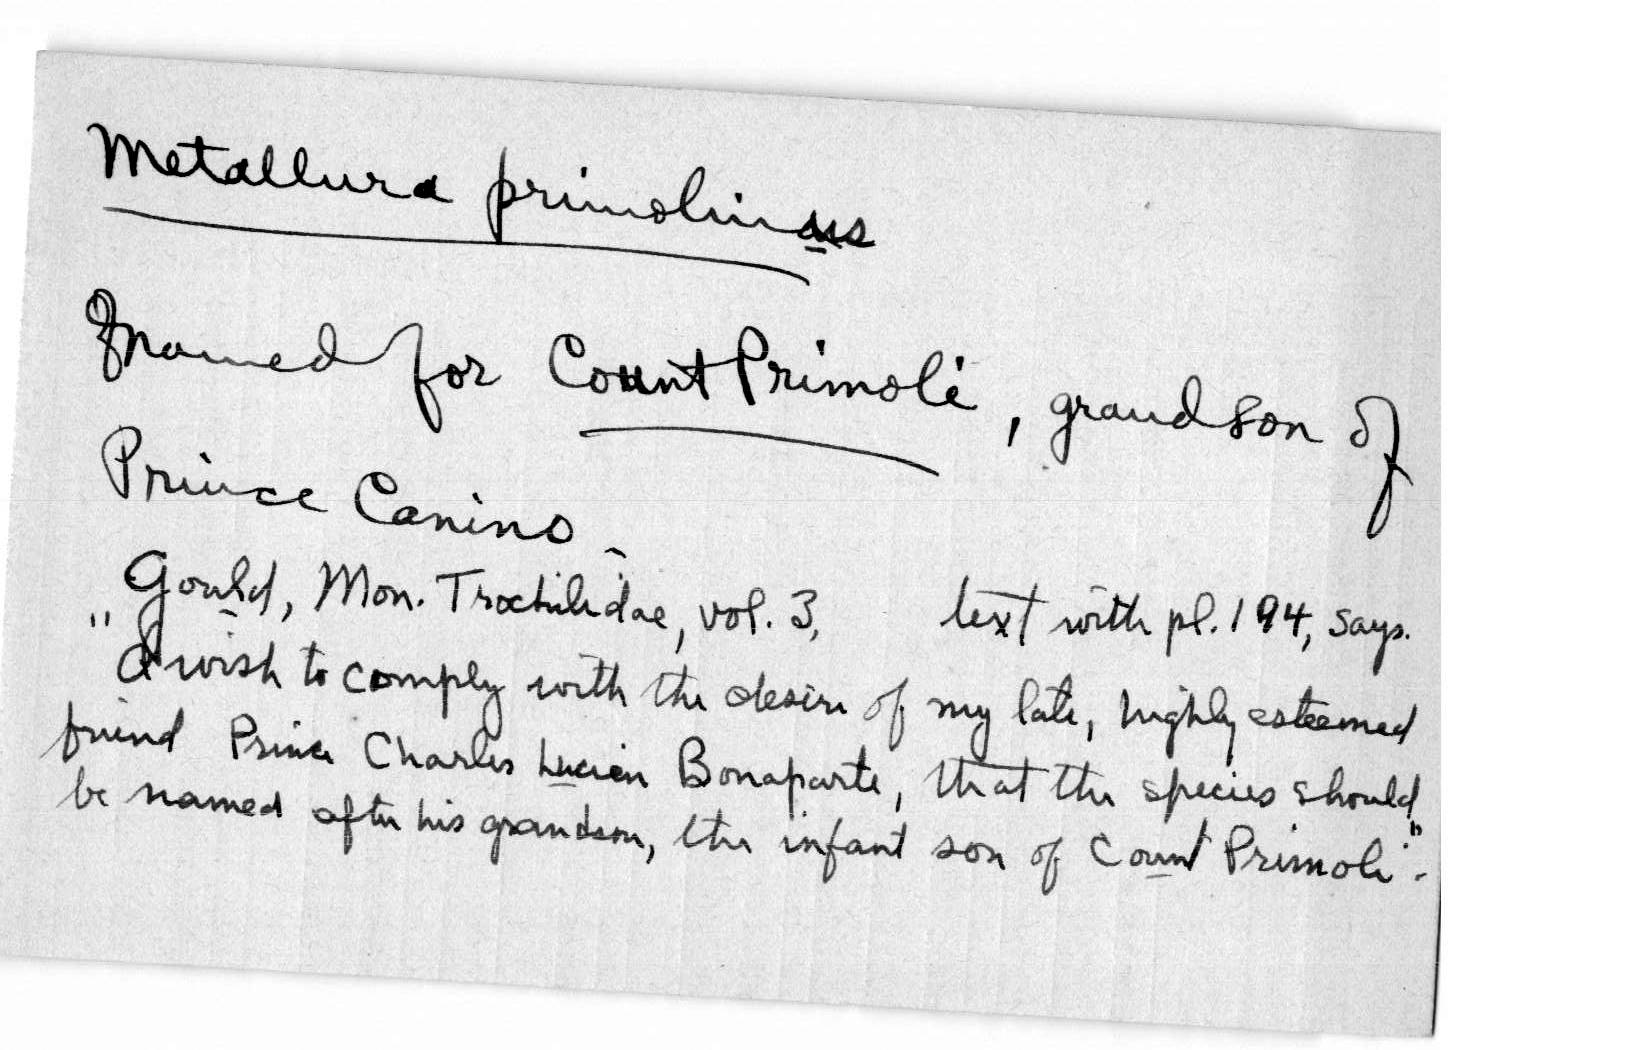 Metallura primolinus
named for Count Primoli, grandson of
Prince Canino.
Gould, Mon. Trochilidae, vol. 3, text with pl. 194, says.
"I wish to comply with the desire of my late, highly esteemed
friend Prince Charles Lucien Bonaparte, that the species should
be named after his grandson, the infant son of Count Primoli".